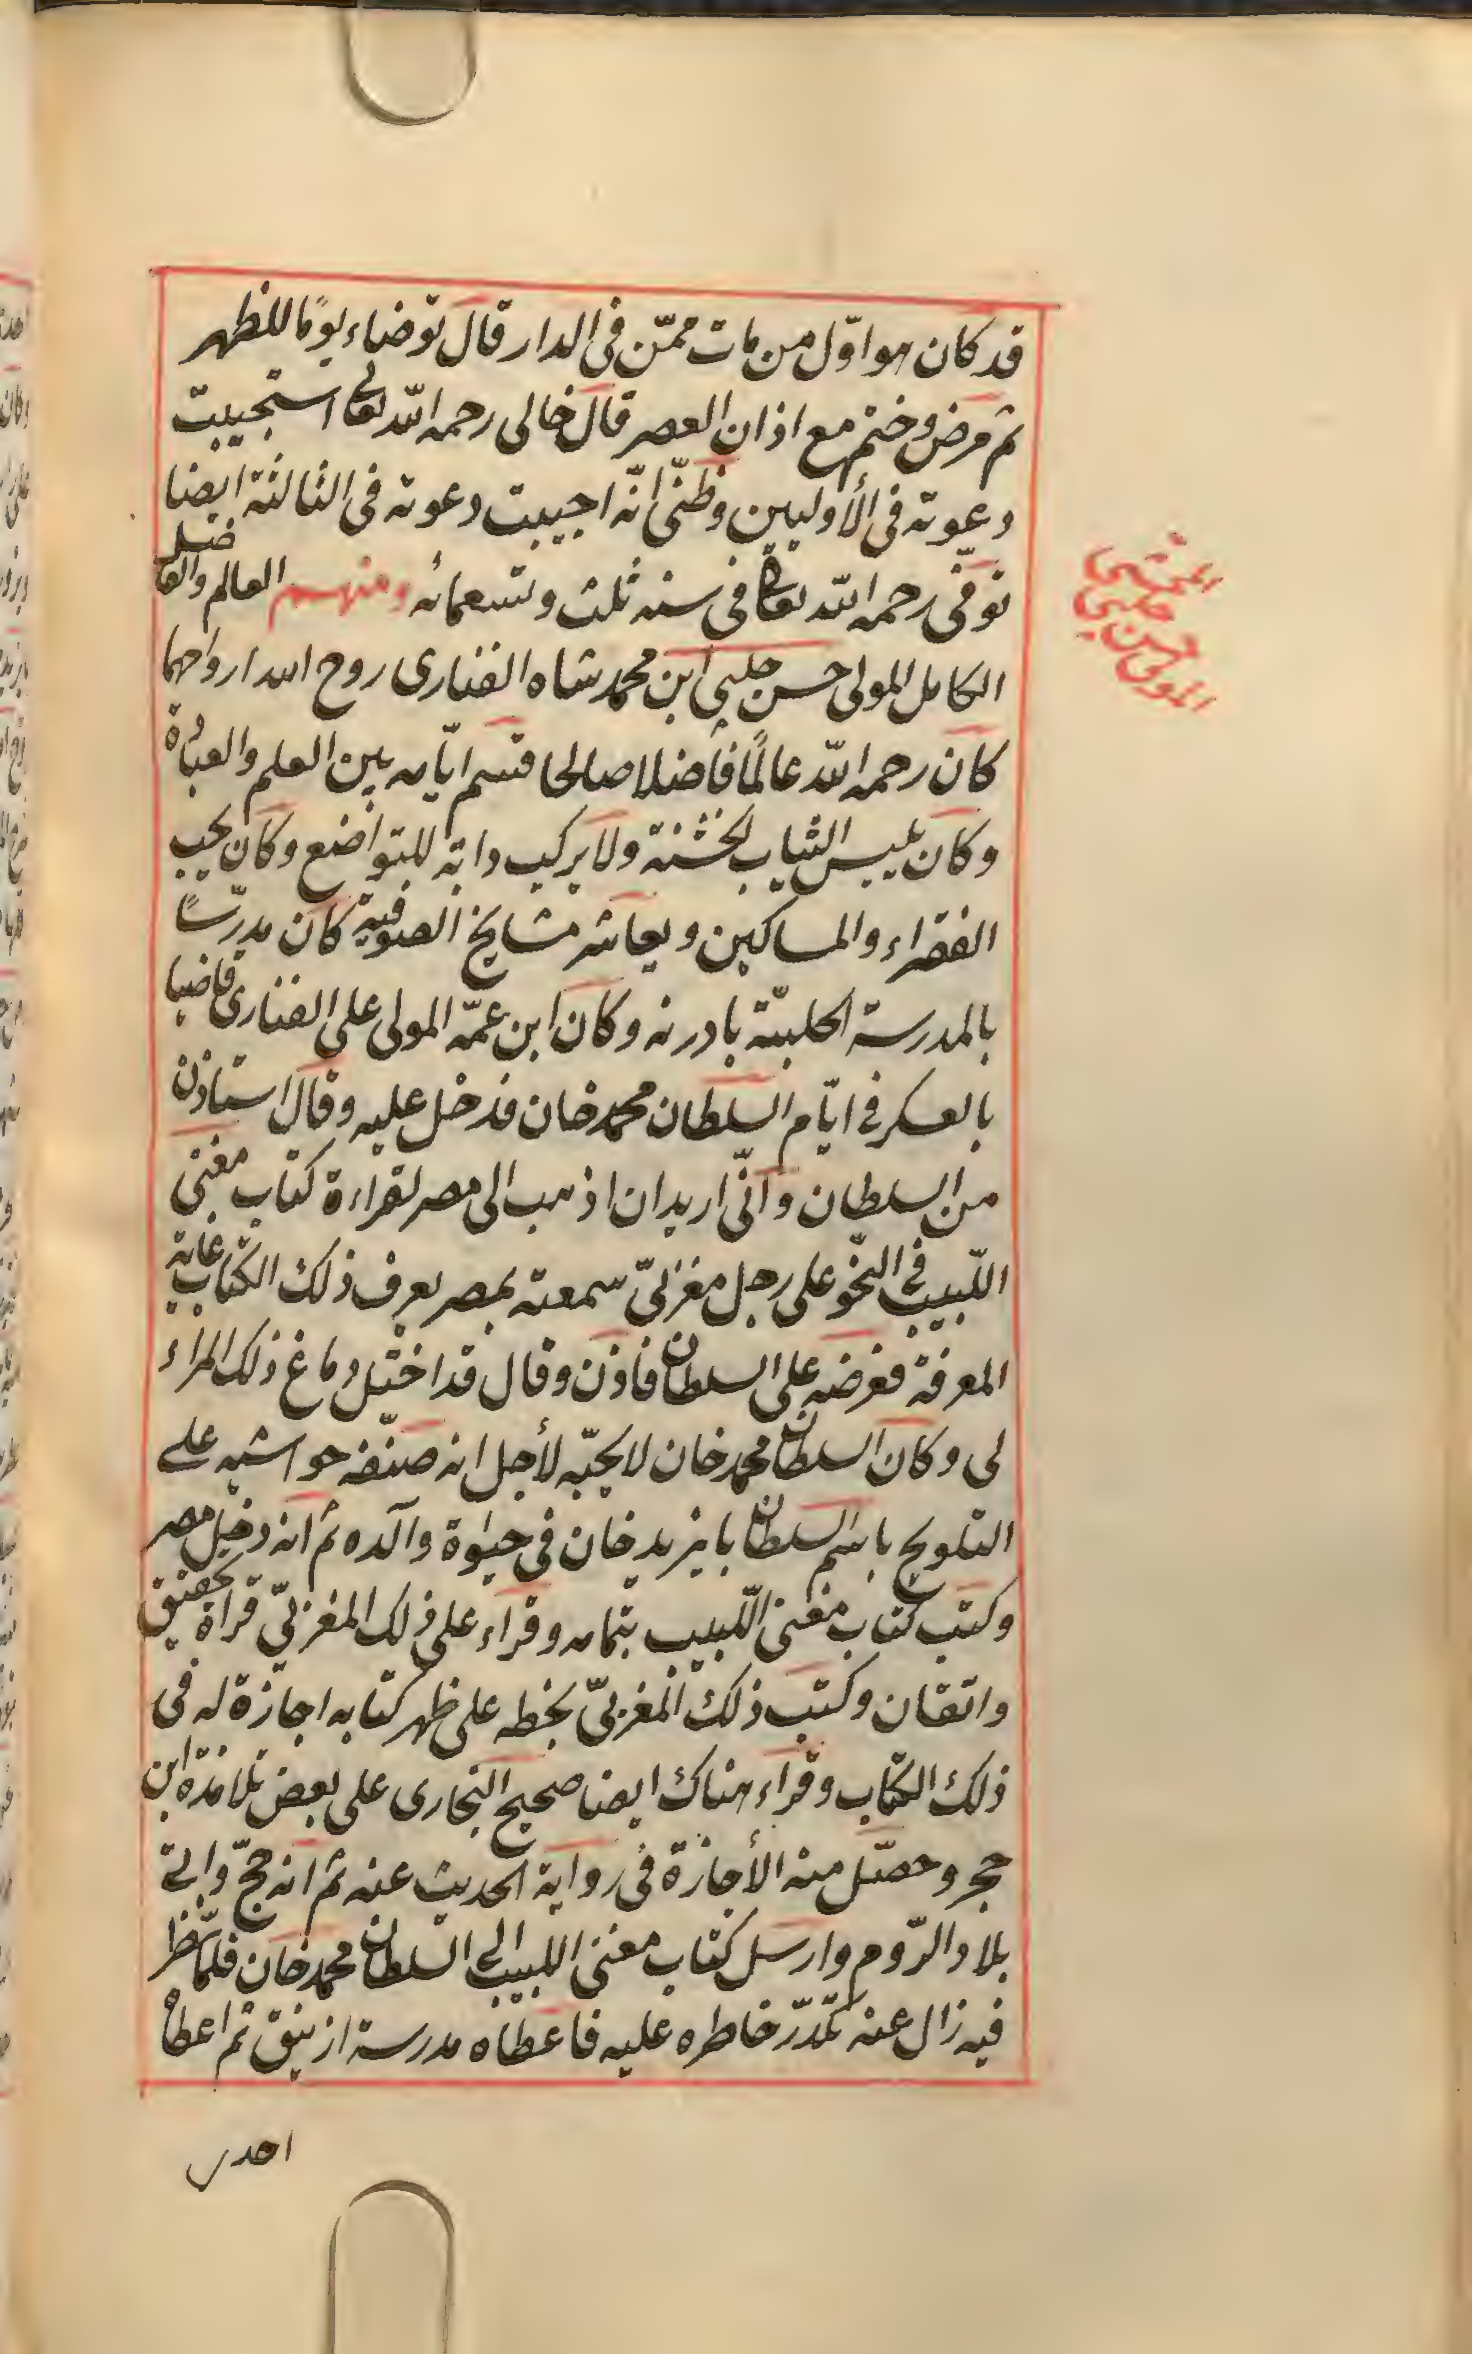 قد كان هو اوّل من مات ممّن فى الدار قال توضاء يومًا للظهر
ثم مرض وختم مع اذان العصر قال خالى رحمه اللّه تعالى استجيبت
دعوته فى الأوليين وظنّى انّه اجيبت دعوته فى الثالثة ايضا
توفّى رحمه اللّه تعالى فى سنه ثلث وتسعمائه ومنهم العالم والفاضل
الكامل المولى حسن چلبى ابن محمد شاه الفنارى روح الله ارواحهما
كان رحمه اللّه عالمًا فاضلا صالحا قسم ايّامه بين العلم والعبادة
وكان يلبس الثياب الخشنة ولا يركب دابّه للتواضع وكان يحب
الفقراء والمساكين ويعاشر مشايخ الصوفية كان مدرّسًا
بالمدرسة الحلبيّة بادرنه وكان ابن عمّه المولى على الفنارى قاضيا
بالعسكر فى ايّام السلطان محمد خان فدخل عليه وقال استاذن
من السلطان وانّى اريد ان اذهب الى مصر لقراءة كتاب مغنى
اللّبيب فى النّحو على رجل مغربىّ سمعته بمصر يعرف ذلك الكتاب غاية
المعرفة فعرضه على السلطان فاذن وقال قد اختلّ دماغ ذلك المراء
لى وكان السلطان محمد خان لا يحبّه لأجل انه صنّفه حواشيه على
التلويح باسم السلطان بايزيد خان فى حيوة والده ثم انه دخل مصر
وكتب كتاب مغنى اللّبيب بتمامه وقراء على ذلك المغربىّ قراة تحقيق
واتقان وكتب ذلك المغربىّ بخطه على ظهر كتابه اجازة له فى
ذلك الكتاب وقراء هناك ايضا صحيح البخارى على بعض تلامذة ابن
حجر وحصّل منه الأجازة فى رواية الحديث عنه ثم انه حجّ واتى
بلاد الرّوم وارسل كتاب مغنى اللبيب الى السلطان محمد خان فلمّا نظر
فيه زال عنه تكدّر خاطره عليه فاعطاه مدرسة ازنيق ثم اعطاه
المولى حسن چلبى
احدى